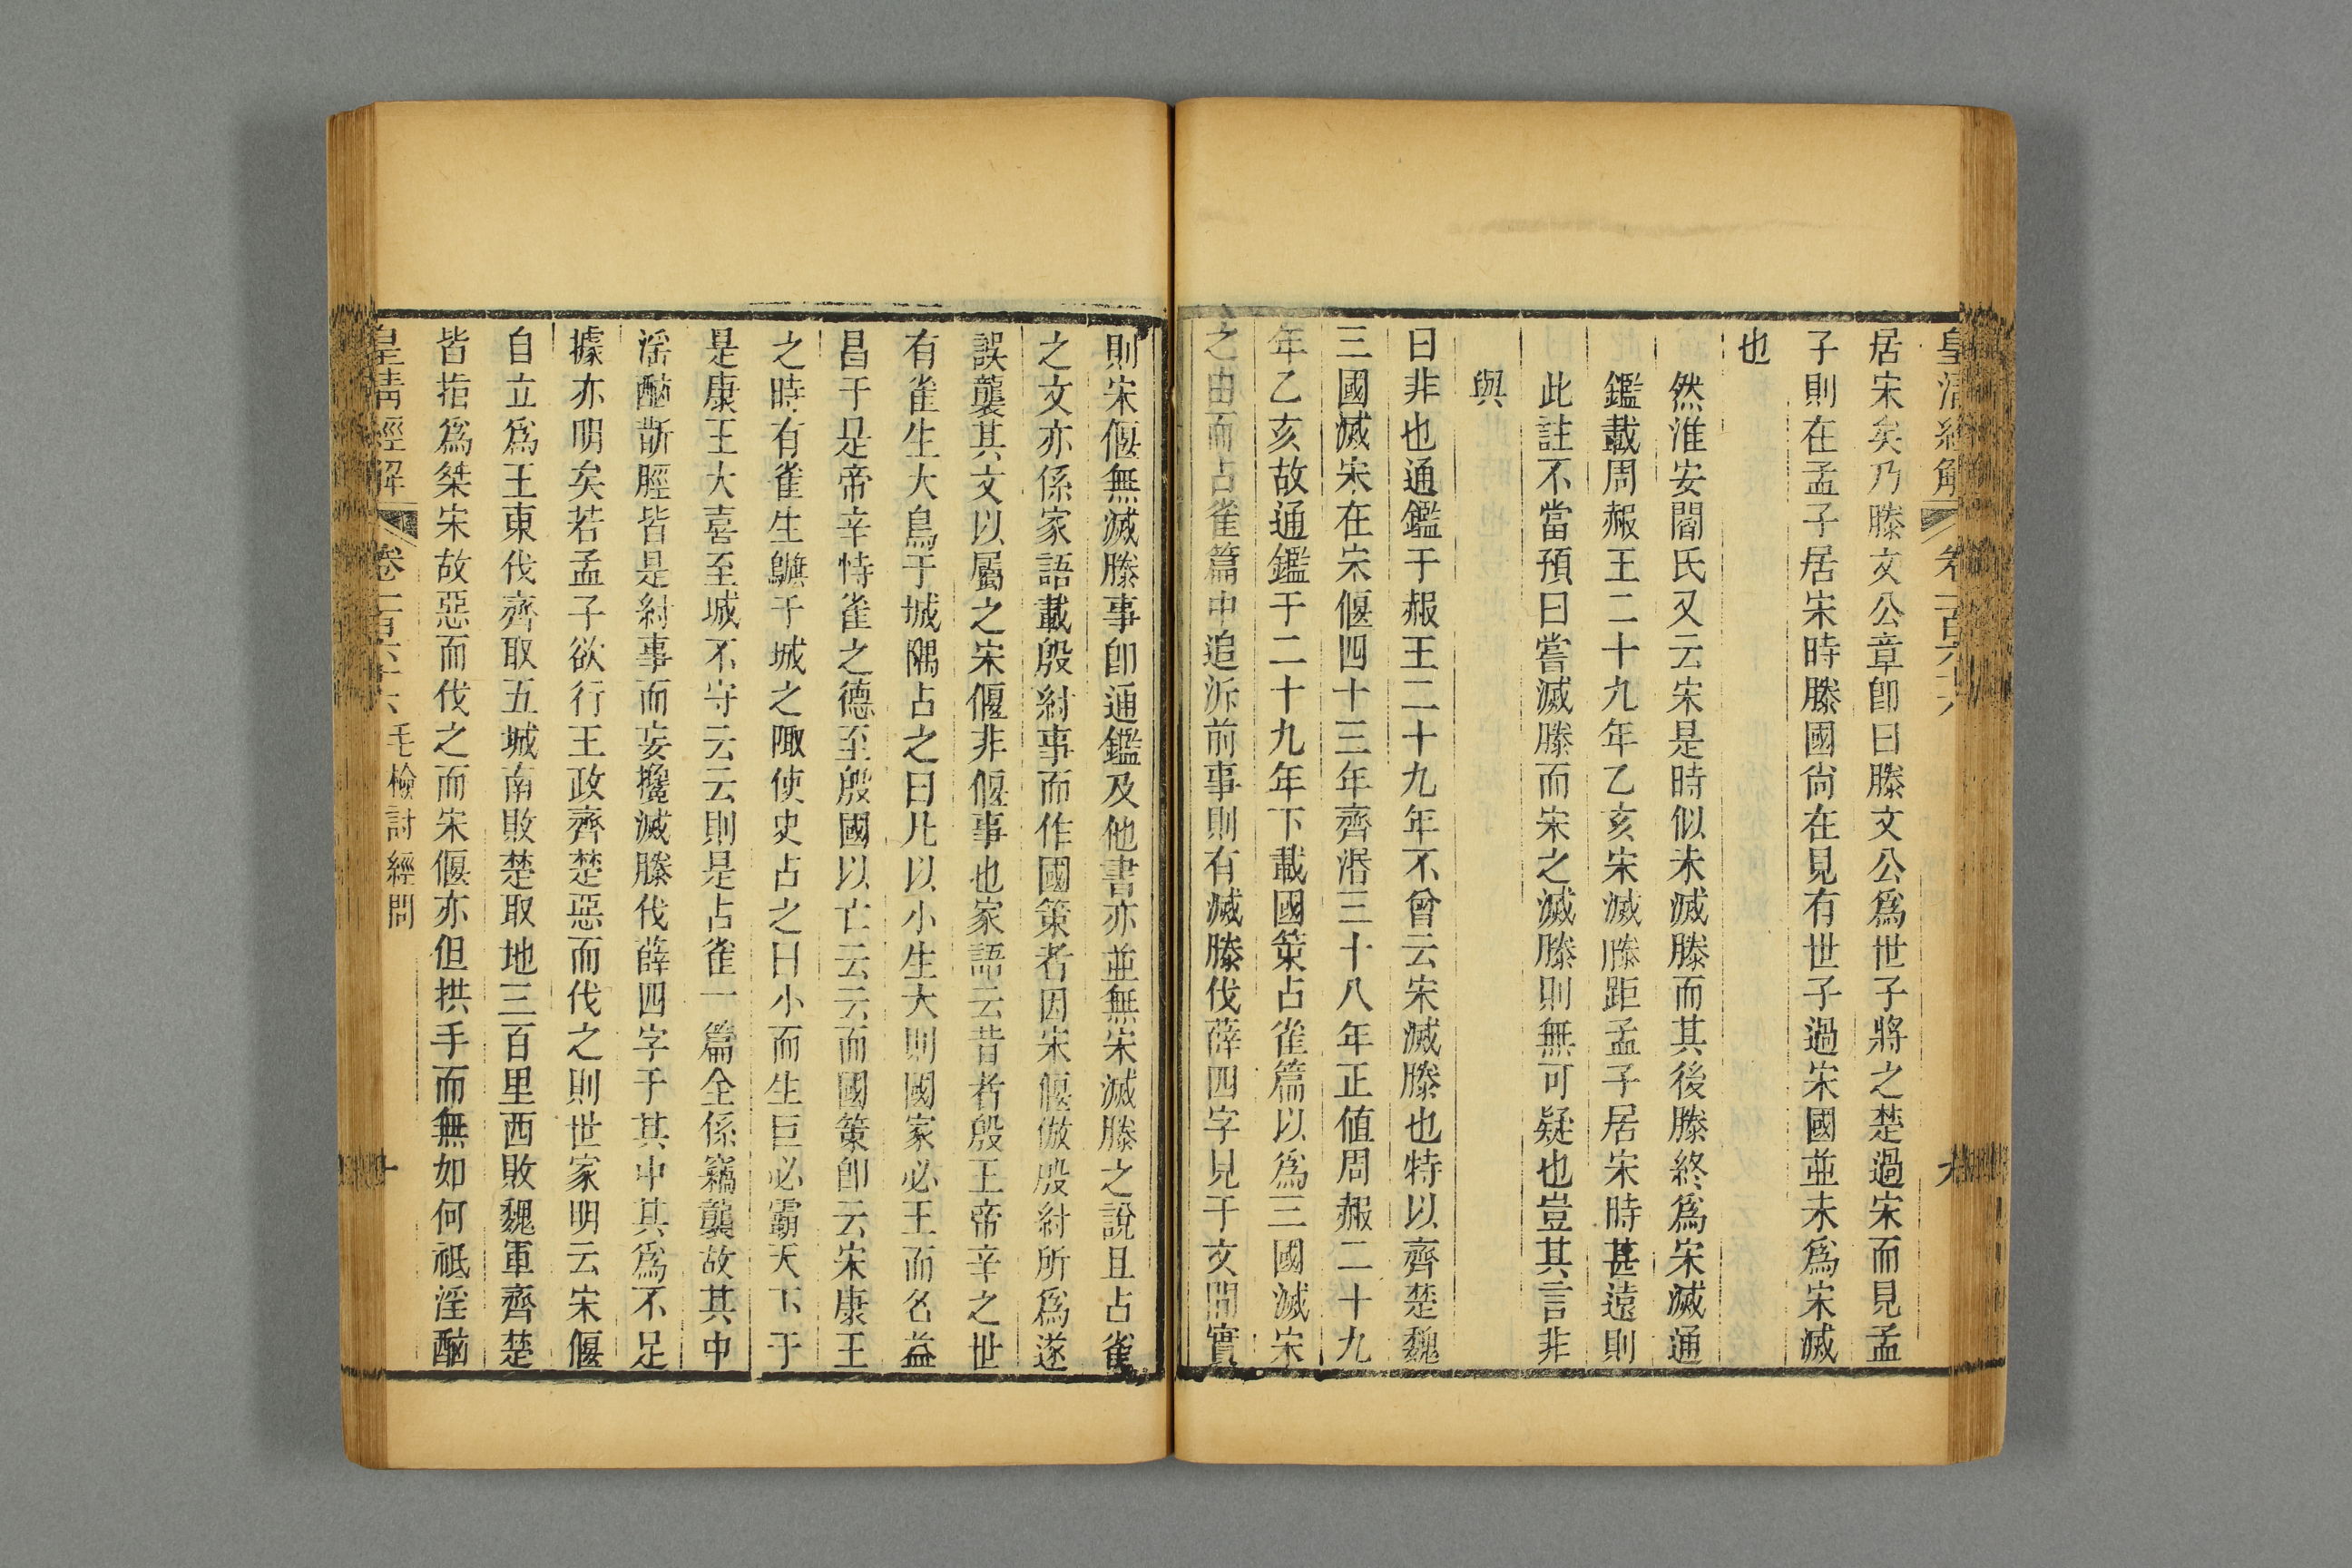 皇清經解 卷一百六十六 九
居宋矣乃滕文公章卽曰滕文公爲世子將之楚過宋而見孟
子則在孟子居宋時滕國尙在見有世子過宋國並未爲宋滅
也
然淮安閻氏又云宋是時似未滅滕而其後滕終爲宋滅通
鑑載周赧王二十九年乙亥宋滅滕距孟子居宋時甚遠則
此註不當預曰嘗滅滕而宋之滅滕則無可疑也豈其言非
與
曰非也通鑑于赧王二十九年不曾云宋滅滕也特以齊楚魏
三國滅宋在宋偃四十三年齊湣三十八年正值周赧二十九
年乙亥故通鑑于二十九年下載國策占雀篇以爲三國滅宋
之由而占雀篇中追泝前事則有滅滕伐薛四字見于文間實
則宋偃無滅滕事卽通鑑及他書亦並無宋滅滕之說且占雀
之文亦係家語載殷紂事而作國策者因宋偃倣殷紂所爲遂
誤襲其文以屬之宋偃非偃事也家語云昔者殷王帝辛之世
有雀生大鳥于城隅占之曰凡以小生大則國家必王而名益
昌于是帝辛恃雀之德至殷國以亡云云而國策卽云宋康王
之時有雀生鸇于城之陬使史占之曰小而生巨必霸天下于
是康王大喜至城不守云云則是占雀一篇全係竊襲故其中
淫酗斮脛皆是紂事而妄攙滅滕伐薛四字于其中其爲不足
據亦明矣若孟子欲行王政齊楚惡而伐之則世家明云宋偃
自立爲王東伐齊取五城南敗楚取地三百里西敗魏軍齊楚
皆指爲桀宋故惡而伐之而宋偃亦但拱手而無如何祗淫酗
皇清經解 卷一百六十六 毛檢討經問 十